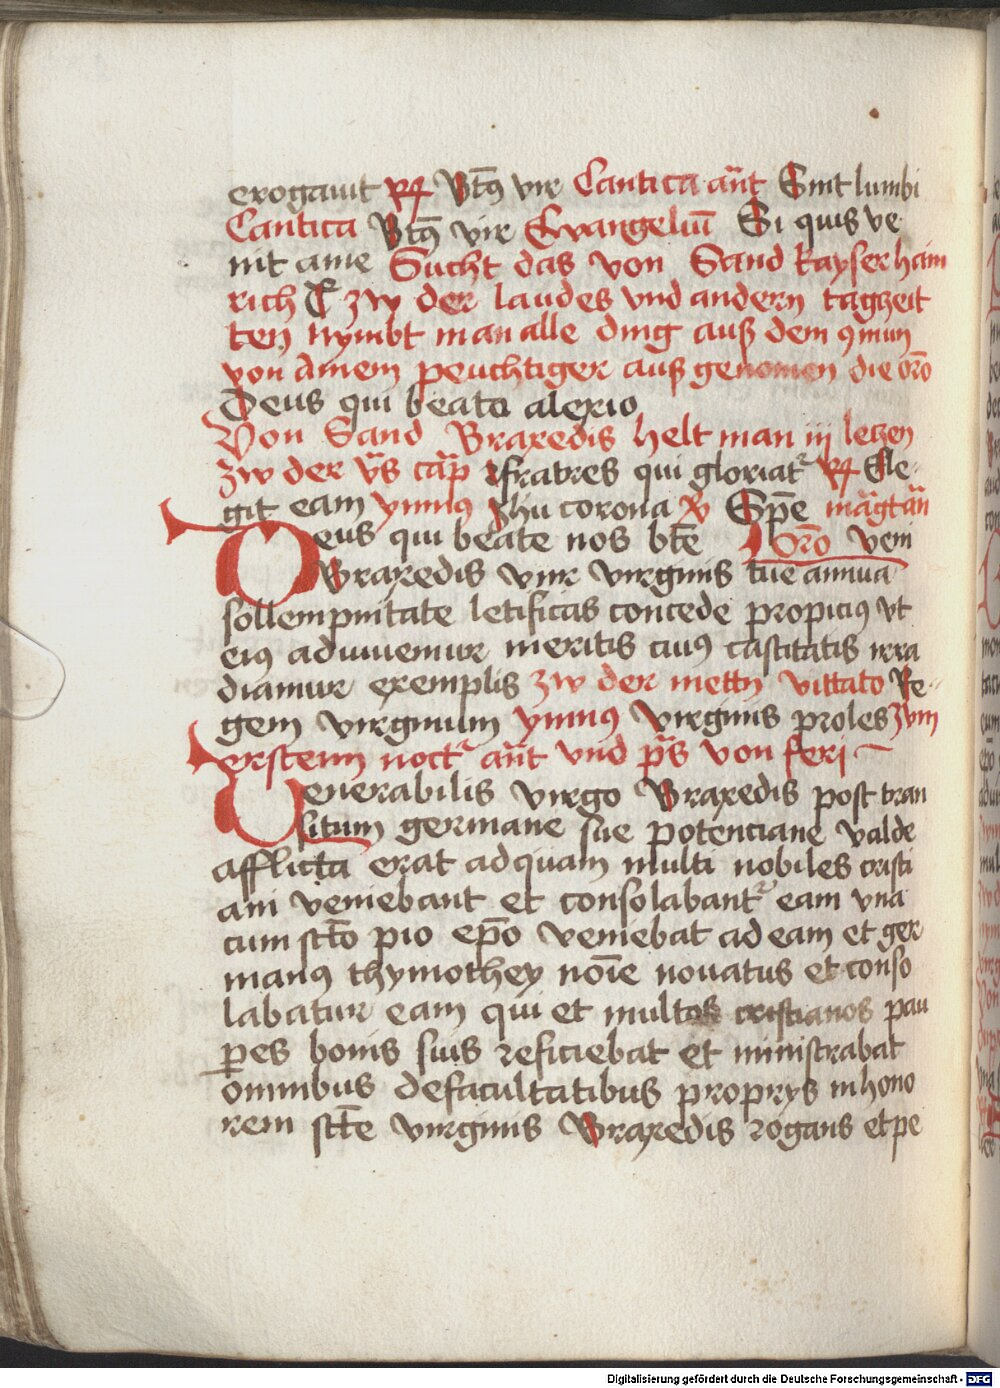 exogauit R Btꝯ vir Cantica an̄t Sint lumbi
Cantica Btꝯ vir Ewangeliū Si quis ve
nit ad me Sucht das von Sand kayser hain
rich zw der laudes vnd andern tagzeit
ten nymbt man alle ding auß dem ꝯmun
von ainem peuchtiger auß genomen die oro
Deus qui beato alexio
Von Sand Braxedis helt man iij letzen
zw der vs cap fratres qui gloriat R Ele
git eam ymnꝯ Jhu corona V Spe
eus qui beate nos bte Oro veni
Braxedis vnir virginis tue annua
sollempnitate letificas concede propicius vt
eiꝯ adiuuemur meritis cuiꝯ castitatis irra
diamur exemplis zw der mettn vittato Re
gem virginum ymnꝯ virginis proles zvm
ersten noct an̄t vnd ps von feri
Venerabilis virgo Braxedis post tran
situm germane sue potenciane valde
afflicta erat ad quam multi nobiles cristi
ani veniebant et consolabant eam vna
cum scto pio epo veniebat ad eam et ger
manꝯ thymothey noie nouatus et conso
labatur eam qui et multos cristianos pau
peres bonis suis reficiebat et ministrabat
omnibus de facultatibus proprys in hono
rem scte virginis Braxedis rogans et pe
Digitalisierung gefördert durch die Deutsche Forschungsgemeinschaft - DFG